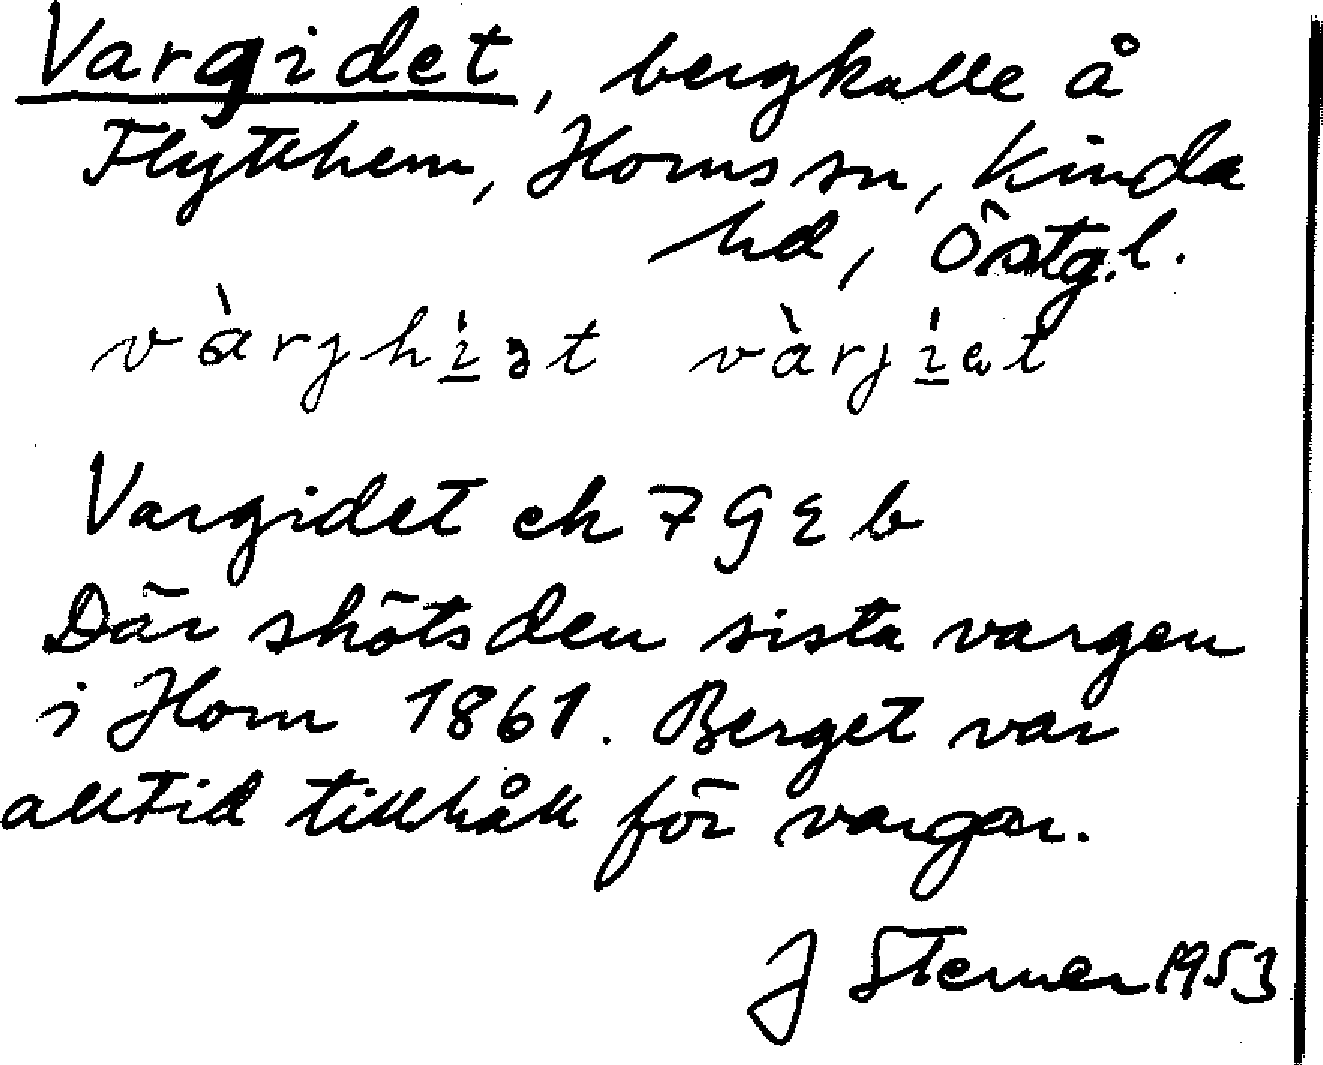 Vargidet, bergkulle å
Flytthem, Horns sn, Kinda
hd, Östg.l.
Vargidet ek 7 G Σ b
Där sköts den sista vargen
i Horn 1861. Berget var
alltid tillhåll för vargar.
J Sterner 1953